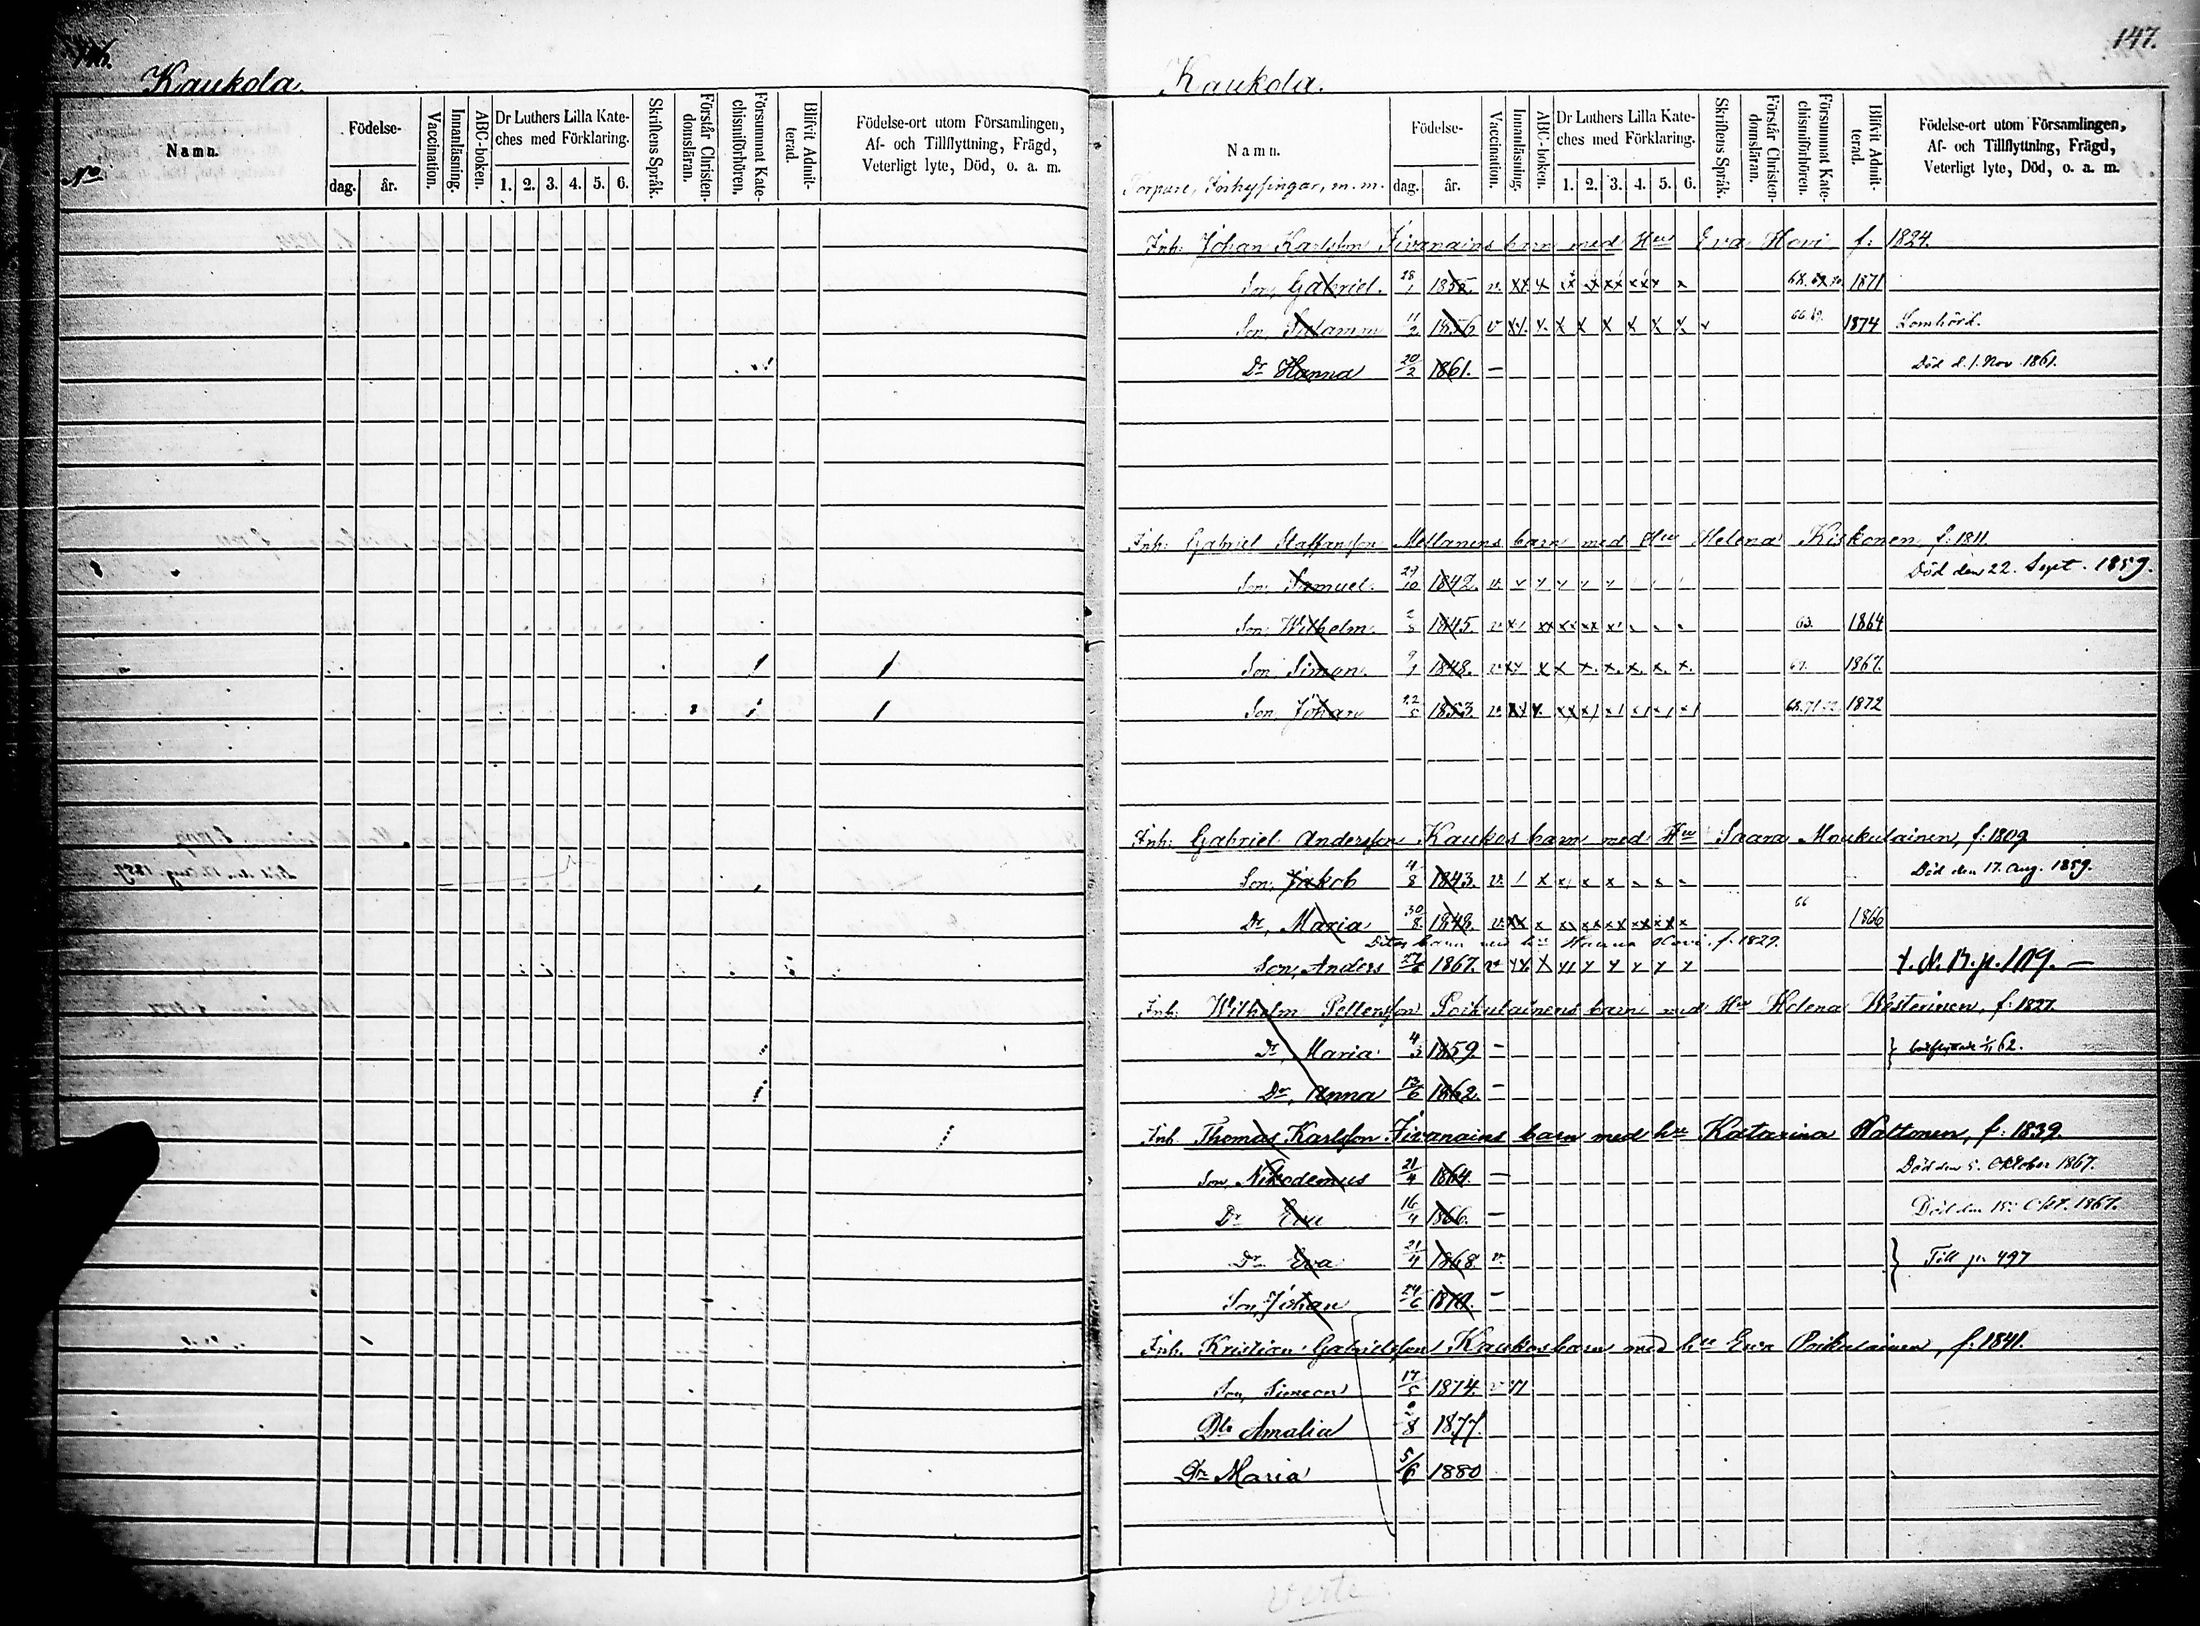 146.
Kaukola.
No
Namn.
Födelse-
dag.
år.
Vaccination.
Innanläsning.
ABC-boken.
Dr Luthers Lilla Kate-
ches med Förklaring.
1. 2. 3. 4. 5. 6.
Skriftens Språk.
Förstår Christen-
domsläran.
Försummat Kate-
chismiförhören.
Blifvit Admit-
terad.
Födelse-ort utom Församlingen,
Af- och Tillflyttning, Frägd,
Veterligt lyte, Död, o. a. m.
147.
Kaukola.
Namn.
Torpare, Inhysingar, m. m.
Födelse-
dag.
år.
Vaccination.
Innanläsning.
ABC-boken.
Dr Luthers Lilla Kate-
ches med Förklaring.
1. 2. 3. 4. 5. 6.
Skriftens Språk.
Förstår Christen-
domsläran.
Försummat Kate-
chismiförhören.
Blifvit Admit-
terad.
Födelse-ort utom Församlingen,
Af- och Tillflyttning, Frägd,
Veterligt lyte, Död, o. a. m.
Inh: Johan Karlsson barn med Hu Eva Hovi f: 1824.
Son, Gabriel. 28/1 1855. v. 1871
Son, 11/2 1856 v 1874
Dr Hanna 20/2 1861. — Död d. 1. Nov. 1861.
Inh: Gabriel Staffansson Mellanens barn med Hu Helena Kiskonen, f: 1811.
Son, Samuel. 29/10 1842. v. Död den 22. Sept. 1859.
Son, Wilhelm. 2/8 1845. v. 63. 1864
Son, Simon. 9/1 1848. v. 67. 1867.
Son, Johan 22/5 1853. v. 68.71.72 1872
Inh: Gabriel Andersson Kaukos barn med Hu Saara Moukulainen, f: 1809
Son, Jakob 4/8 1843. v. Död den 17. Aug. 1859.
Dr, Maria 30/8 1848. v. 66 1866
barn med hu Hanna Hovi, f. 1829.
Son, Anders 27/6 1867. v N. B. p. 109. —
Inh: Wilhelm Pettersson Poikulainens barn med Hu Helena Westerinen, f: 1827.
Dr, Maria 4/3 1859 — 62.
Dr, Anna 13/6 1862. —
Inh. Thomas Karlsson barn med hu Katarina Valtonen, f: 1839.
Son, Nikodemus 21/4 1864. — Död den 5. Oktober 1867.
Dr Eva 16/4 1866. — Död den 18. Okt. 1867.
Dr Eva 21/4 1868 v. Till p. 497
Son, Johan 24/6 1870. —
Inh. Kristian Gabrielsson Kaukos barn med hu Eva Poikulainen, f: 1841.
Son, Simeon 17/5 1874. v
Dr Amalia 2/8 1877.
Dr Maria 5/6 1880
verte